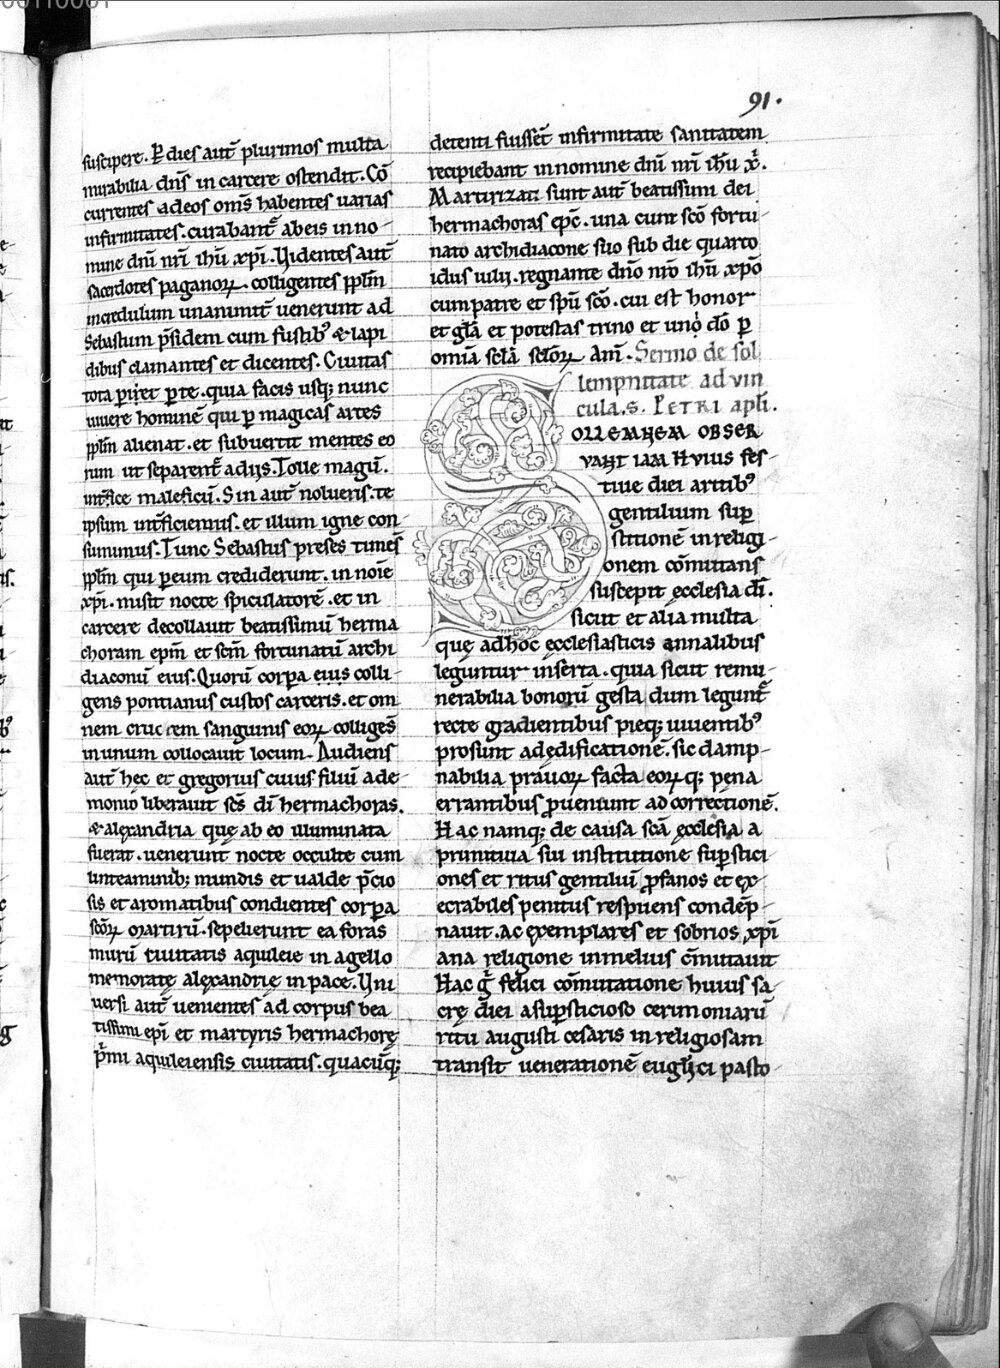 91.
suscipere. P̄ dies aut̄ plurimos multa
mirabilia dn̄s in carcere ostendit. Cō
currentes adeos om̄s habentes uarias
infirmitates. curabant̄ abeis in no-
mine dn̄i nr̄i ih̄u xp̄i. Videntes aut̄
sacerdotes paganoꝝ. colligentes pp̄lm
incredulum unanimit̄ uenerunt ad
Sebastum p̄sidem cum fustib; & lapi
dibus clamantes et dicentes. Ciuitas
tota piret p̱ te. quia facis usq; nunc
uiuere hominē qui p̱ magicas artes
pp̄lm alienat. et subuertit mentes eo
rum ut separent̄ adiis. Tolle magū.
int̄fice maleficū. Sin aut̄ nolueris. te
ipsum int̄ficiemus. et illum igne con-
sumimus. Tunc Sebastus preses timēs
pp̄lm qui p̱eum crediderunt. in noīe
xp̄i. misit nocte spiculatorē. et in
carcere decollauit beatissimū herma
choram ep̄m et sc̄m fortunatū archi
diaconū eius. Quorū corpa eius colli-
gens pontianus custos carceris. et om
nem cruorem sanguinis eoꝝ colligēs
in unum collocauit locum. Audiens
aut̄ hec et gregorius cuius filiū a de-
monio liberauit sc̄s dī hermachoras.
& alexandria quę ab eo illuminata
fuerat. uenerunt nocte occulte cum
linteaminib; mundis et ualde p̄cio
sis et aromatibus condientes corpa
sc̄oꝝ martirū. sepelierunt ea foras
murū ciuitatis aquileie in agello
memoratę alexandrię in pace. Vni
uersi aut̄ uenientes ad corpus bea
tissimi ep̄i et martyris hermachorę
p̄mi aquileiensis ciuitatis. quacūq;
detenti fuissēt infirmitate sanitatem
recipiebant in nomine dn̄i nr̄i ih̄u x̄.
Martirizati sunt aut̄ beatissimi dei
hermachoras ep̄c. una cum sc̄o fortu-
nato archidiacone suo sub die quarto
idus iulii. regnante dn̄o nr̄o ih̄u xp̄o
cum patre et sp̄u sc̄o. cui est honor
et gl̄a et potestas trino et uno dō p̱
omīa scl̄a scl̄oꝝ Am̄. Sermo de sol
lempnitate ad vin
cula. S. PETRI apl̄i.
OLLEMNEM OBSER
VANT IAM HVIUS fes-
tiue diei artib;
gentilium sup̱
stitionē in religi-
onem cōmutans
suscepit ęcclesia dī.
sicut et alia multa
quę adhoc ęcclesiasticis annalibus
leguntur inserta. quia sicut remu-
nerabilia bonorū gesta dum legunt̄
recte gradientibus pieq; uiuentib;
prosunt adędificationē. sic damp-
nabilia prauoꝝ facta eoꝝ q; pena
errantibus p̱ueniunt ad correctionē.
Hac namq; de causa sc̄a ęcclesia a
primitiua sui institutione sup̱stici-
ones et ritus gentiliū p̱fanos et ex-
ecrabiles penitus respuens condēp-
nauit. Ac exemplares et sobrios xp̄i
ana religione in melius cōmutauit
Hac g̊ felici cōmutatione huius sa-
crę diei a sup̱sticioso cerimoniarū
ritu augusti cesaris in religiosam
transit uenerationē eugl̄ici pasto-